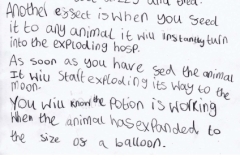 Another essect is when you seed
it to any animal it will instantly turn
into the exploding hosp.
As soon as you have sed the animal
It will start exploding its way to the
moon.
You will know the potion is working
When the animal has expanded to
the size os a balloon.